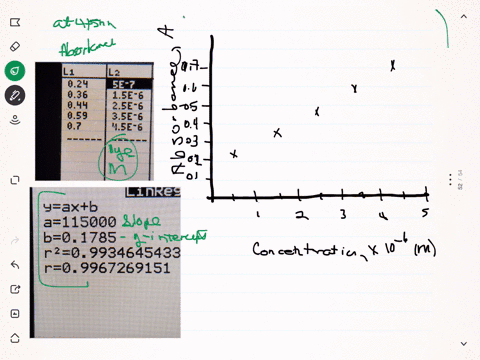 at 475nm
Absorbance
A
L1 L2
0.24 5E-7
0.36 1.5E-6
0.44 2.5E-6
0.59 3.5E-6
0.7 4.5E-6
dye
M
LinReg
y=ax+b
a=115000 slope
b=0.1785 - y-intercept
r²=0.9934645433
r=0.9967269151
Absorbance
0.7
0.6
0.5
0.4
0.3
0.2
0.1
1 2 3 4 5
Concentration, x 10⁻⁶ (M)